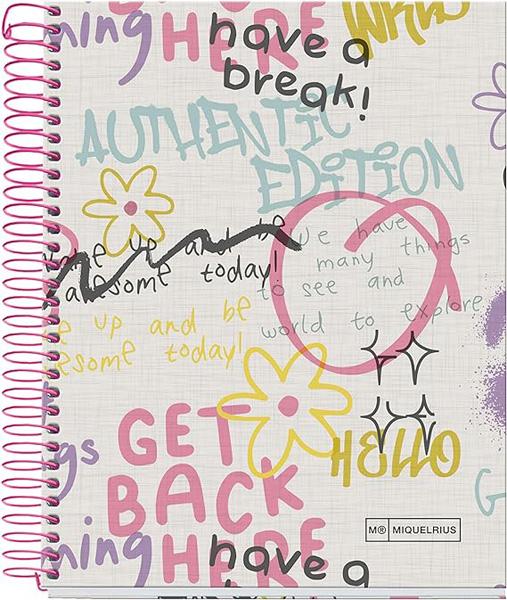 ning HERE
have a
break!
AUTHENTIC
EDITION
up and be
awesome today!
we have
many things
to see and
world to explore
e up and be
esome today!
GET
BACK
HERE
HELLO
gs
ning
M® MIQUELRIUS
have a